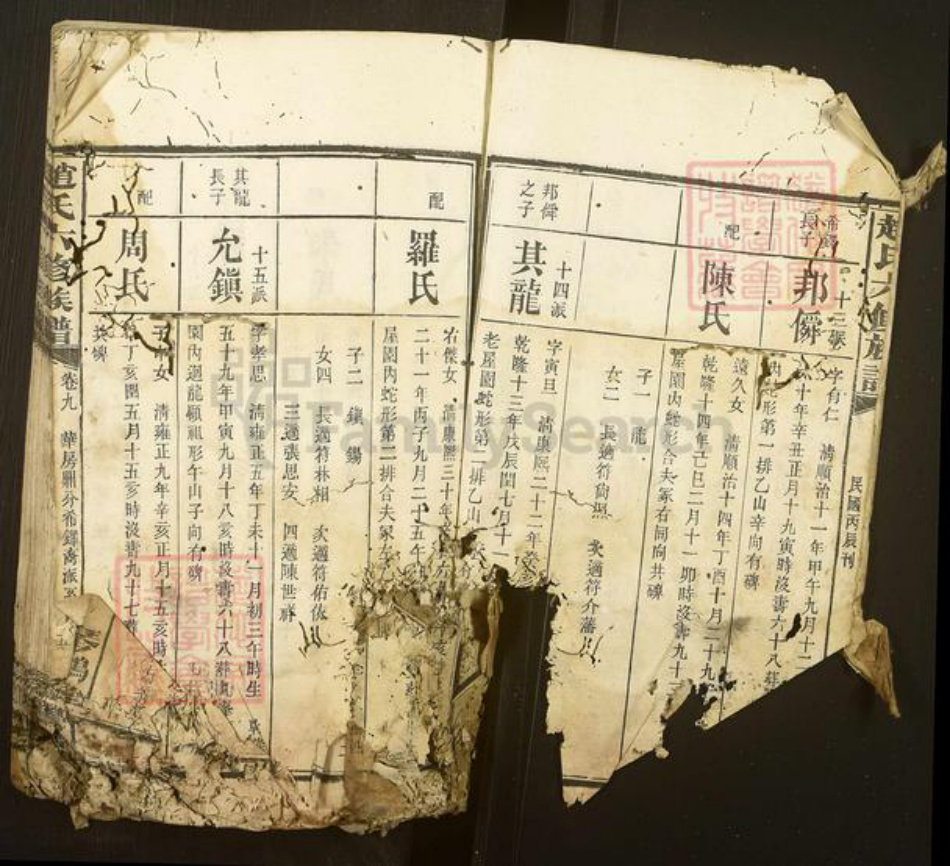 趙氏六修族譜
民國丙辰刊
希鐸長子
邦僻
十三派
字有仁 清順治十一年甲午九月十二
十年辛丑正月十九寅時沒壽六十八葬
內蛇形第一排乙山辛向有碑
配
陳氏
遠久女 清順治十四年丁酉十月二十九
乾隆十四年己巳二月十一卯時沒壽九十三
屋園內蛇形合夫冢右同向共碑
子一 龍
女二 長適符 次適符介藩
邦僻之子
其龍
十四派
字寅旦 清康熙二十二年癸
乾隆十三年戊辰閏七月十一
老屋園蛇形第二排乙山
配
羅氏
若傑女 清康熙三十年
二十一年丙子九月二十五午
屋園內蛇形第二排合夫冢左
子二 鎮 錫
女四 長適符林相 次適符佑依
三適張思安 四適陳世
其龍長子
允鎮
十五派
字孝思 清雍正五年丁未十一月初三午時生
五十九年甲寅九月十八亥時沒壽六十八葬
園內迴龍顧祖形午山子向有碑
配
周氏
女 清雍正九年辛亥正月十五亥時
丁亥閏五月十五亥時沒壽九十七葬
共碑
趙氏六修族譜
卷九 華房鼎分希鐸喬派